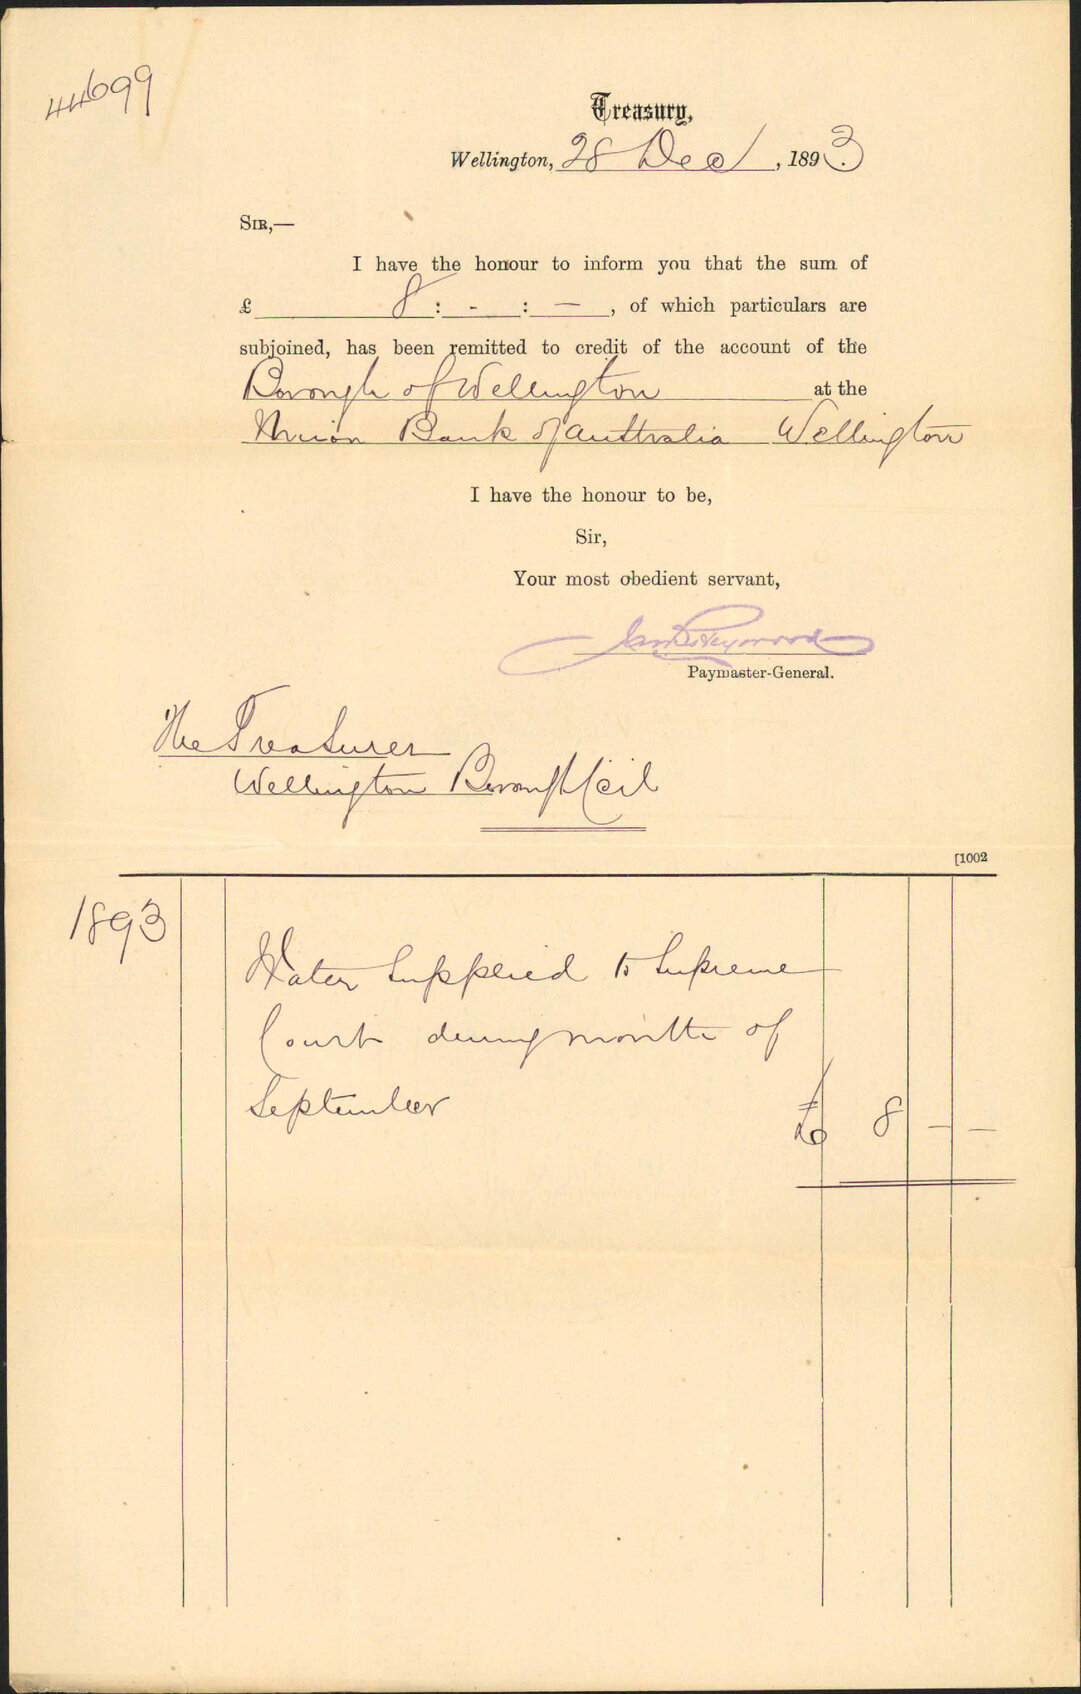 44699
Treasury,
Wellington, 28 Dec, 1893.
SIR,—
I have the honour to inform you that the sum of
£ 8 : - : —, of which particulars are
subjoined, has been remitted to credit of the account of the
Borough of Wellington at the
Union Bank of Australia Wellington
I have the honour to be,
Sir,
Your most obedient servant,
Jas B Heywood
Paymaster-General.
The Treasurer
Wellington Borough Ccil
[1002
1893
Water Supplied to Supreme
Court during month of
September £ 8 — —